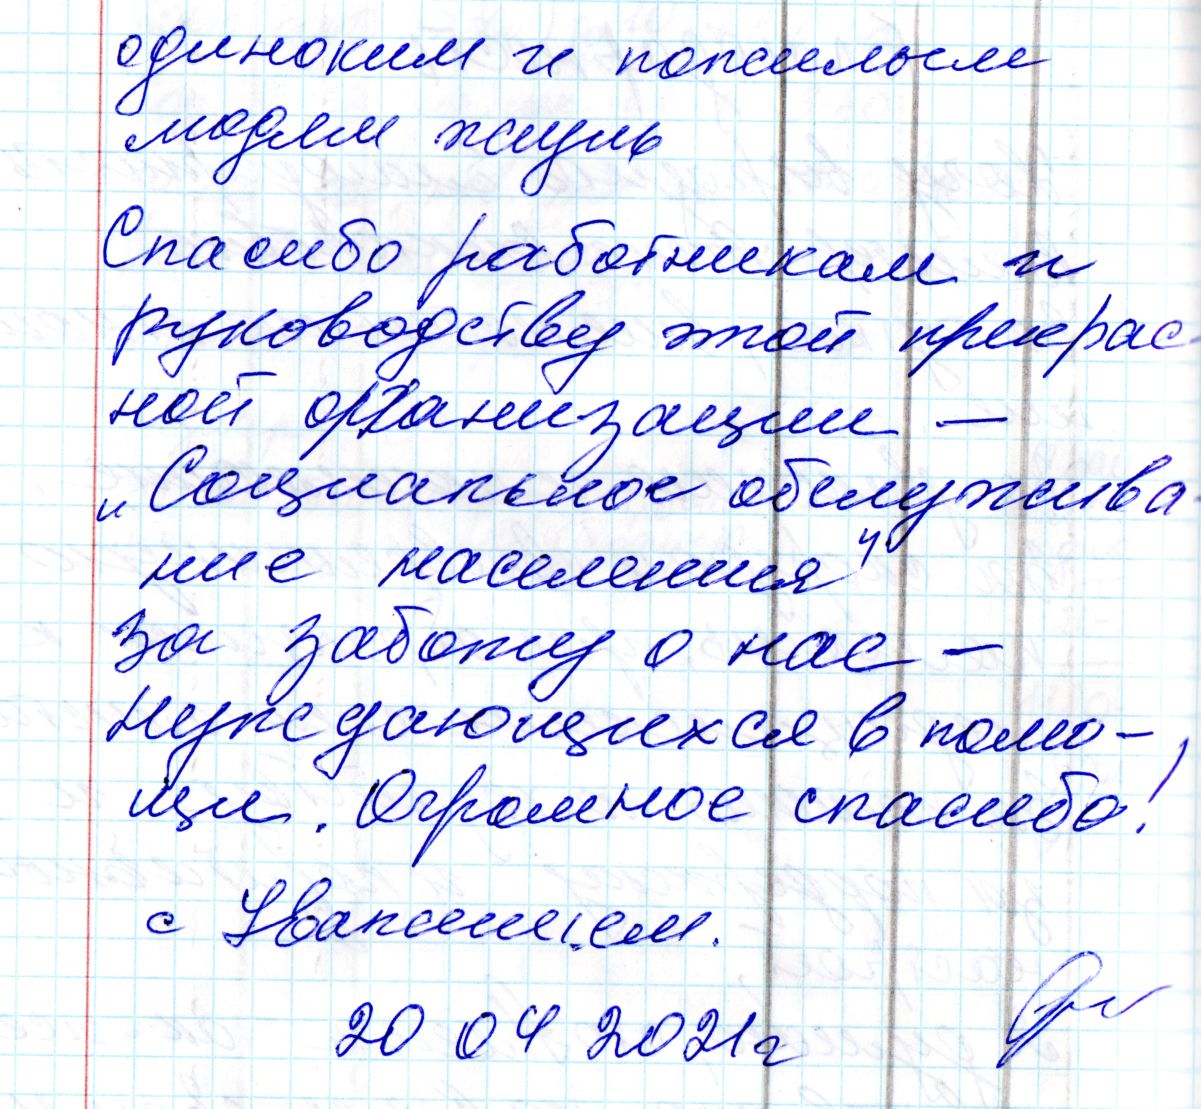 одиноким и пожилым
людям жизнь
Спасибо работникам и
руководству этой прекрас
ной организации —
„Социальное обслужива
ние населения"
за заботу о нас —
нуждающихся в помо-
щи. Огромное спасибо!
с Уважением.
20 04 2021г